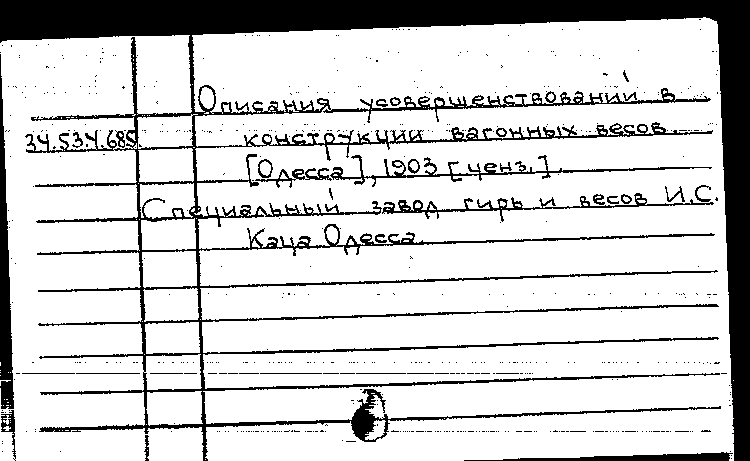 Описания усовершенствований в
34.534.685 конструкции вагонных весов.
[Одесса], 1903 [ценз.].
Специальный завод гирь и весов И.С.
Каца Одесса.